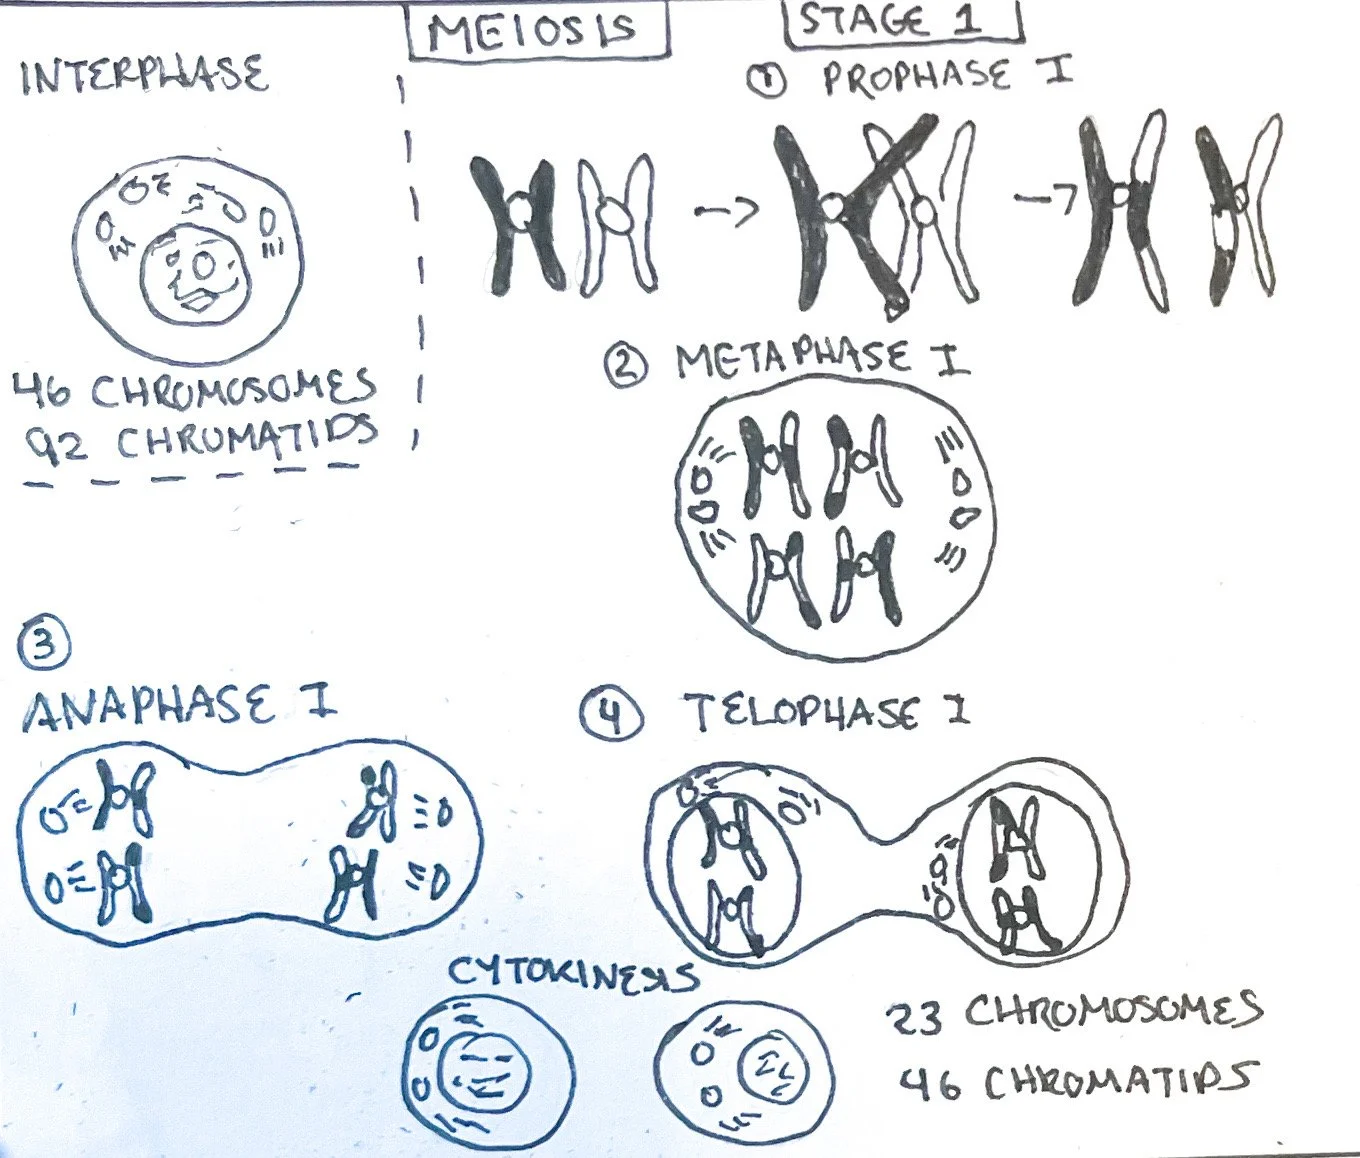 MEIOSIS
STAGE 1
INTERPHASE
46 CHROMOSOMES
92 CHROMATIDS
① PROPHASE I
② METAPHASE I
③
ANAPHASE I
④ TELOPHASE I
CYTOKINESIS
23 CHROMOSOMES
46 CHROMATIDS